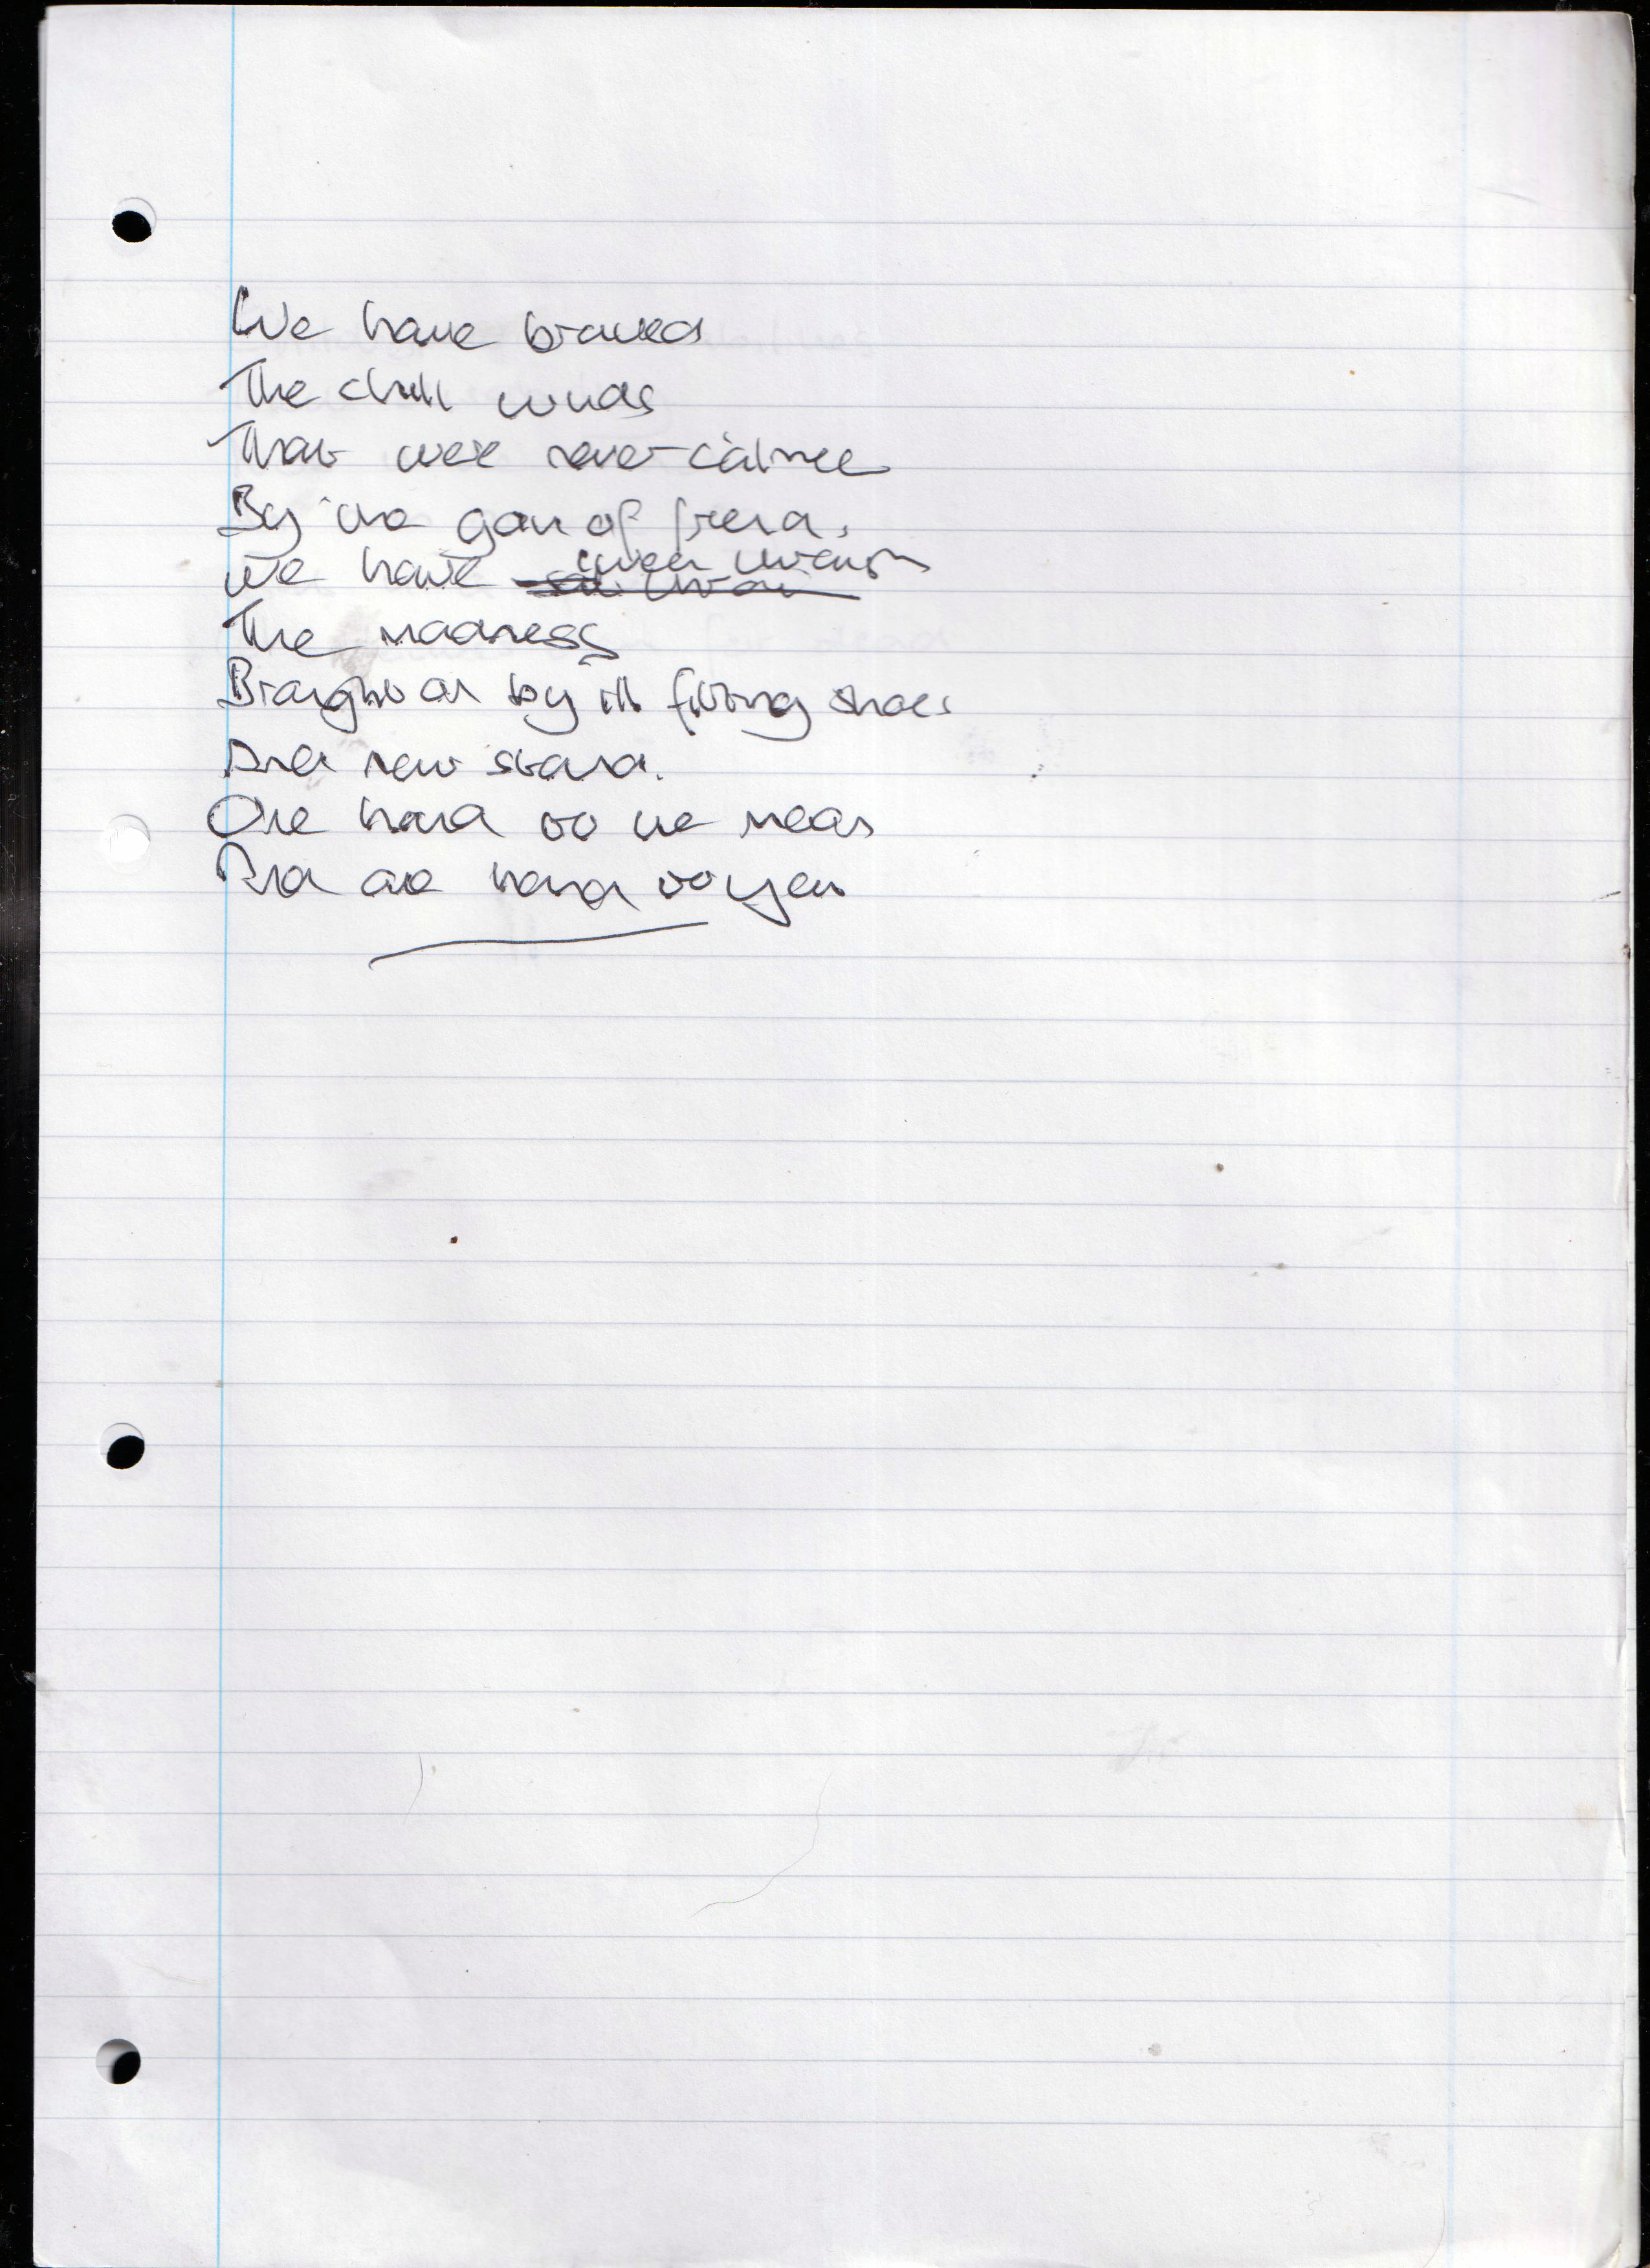 We have braved
The chill winds
That were never calmed
By the god of friend,
We have lived through
The madness
Brought on by ill fitting shoes
And now stand.
One hand to the near
And one hand to you